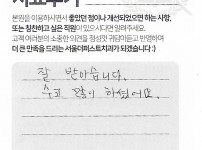 본원을 이용하시면서 좋았던 점이나 개선되었으면 하는 사항,
또는 칭찬하고 싶은 직원이 있으시다면 알려주세요.
고객 여러분의 소중한 의견을 정성껏 귀담아듣고 반영하여
더 큰 만족을 드리는 서울더퍼스트치과가 되겠습니다 :)
잘 받아습니다.
수고 많이 하셨어요.